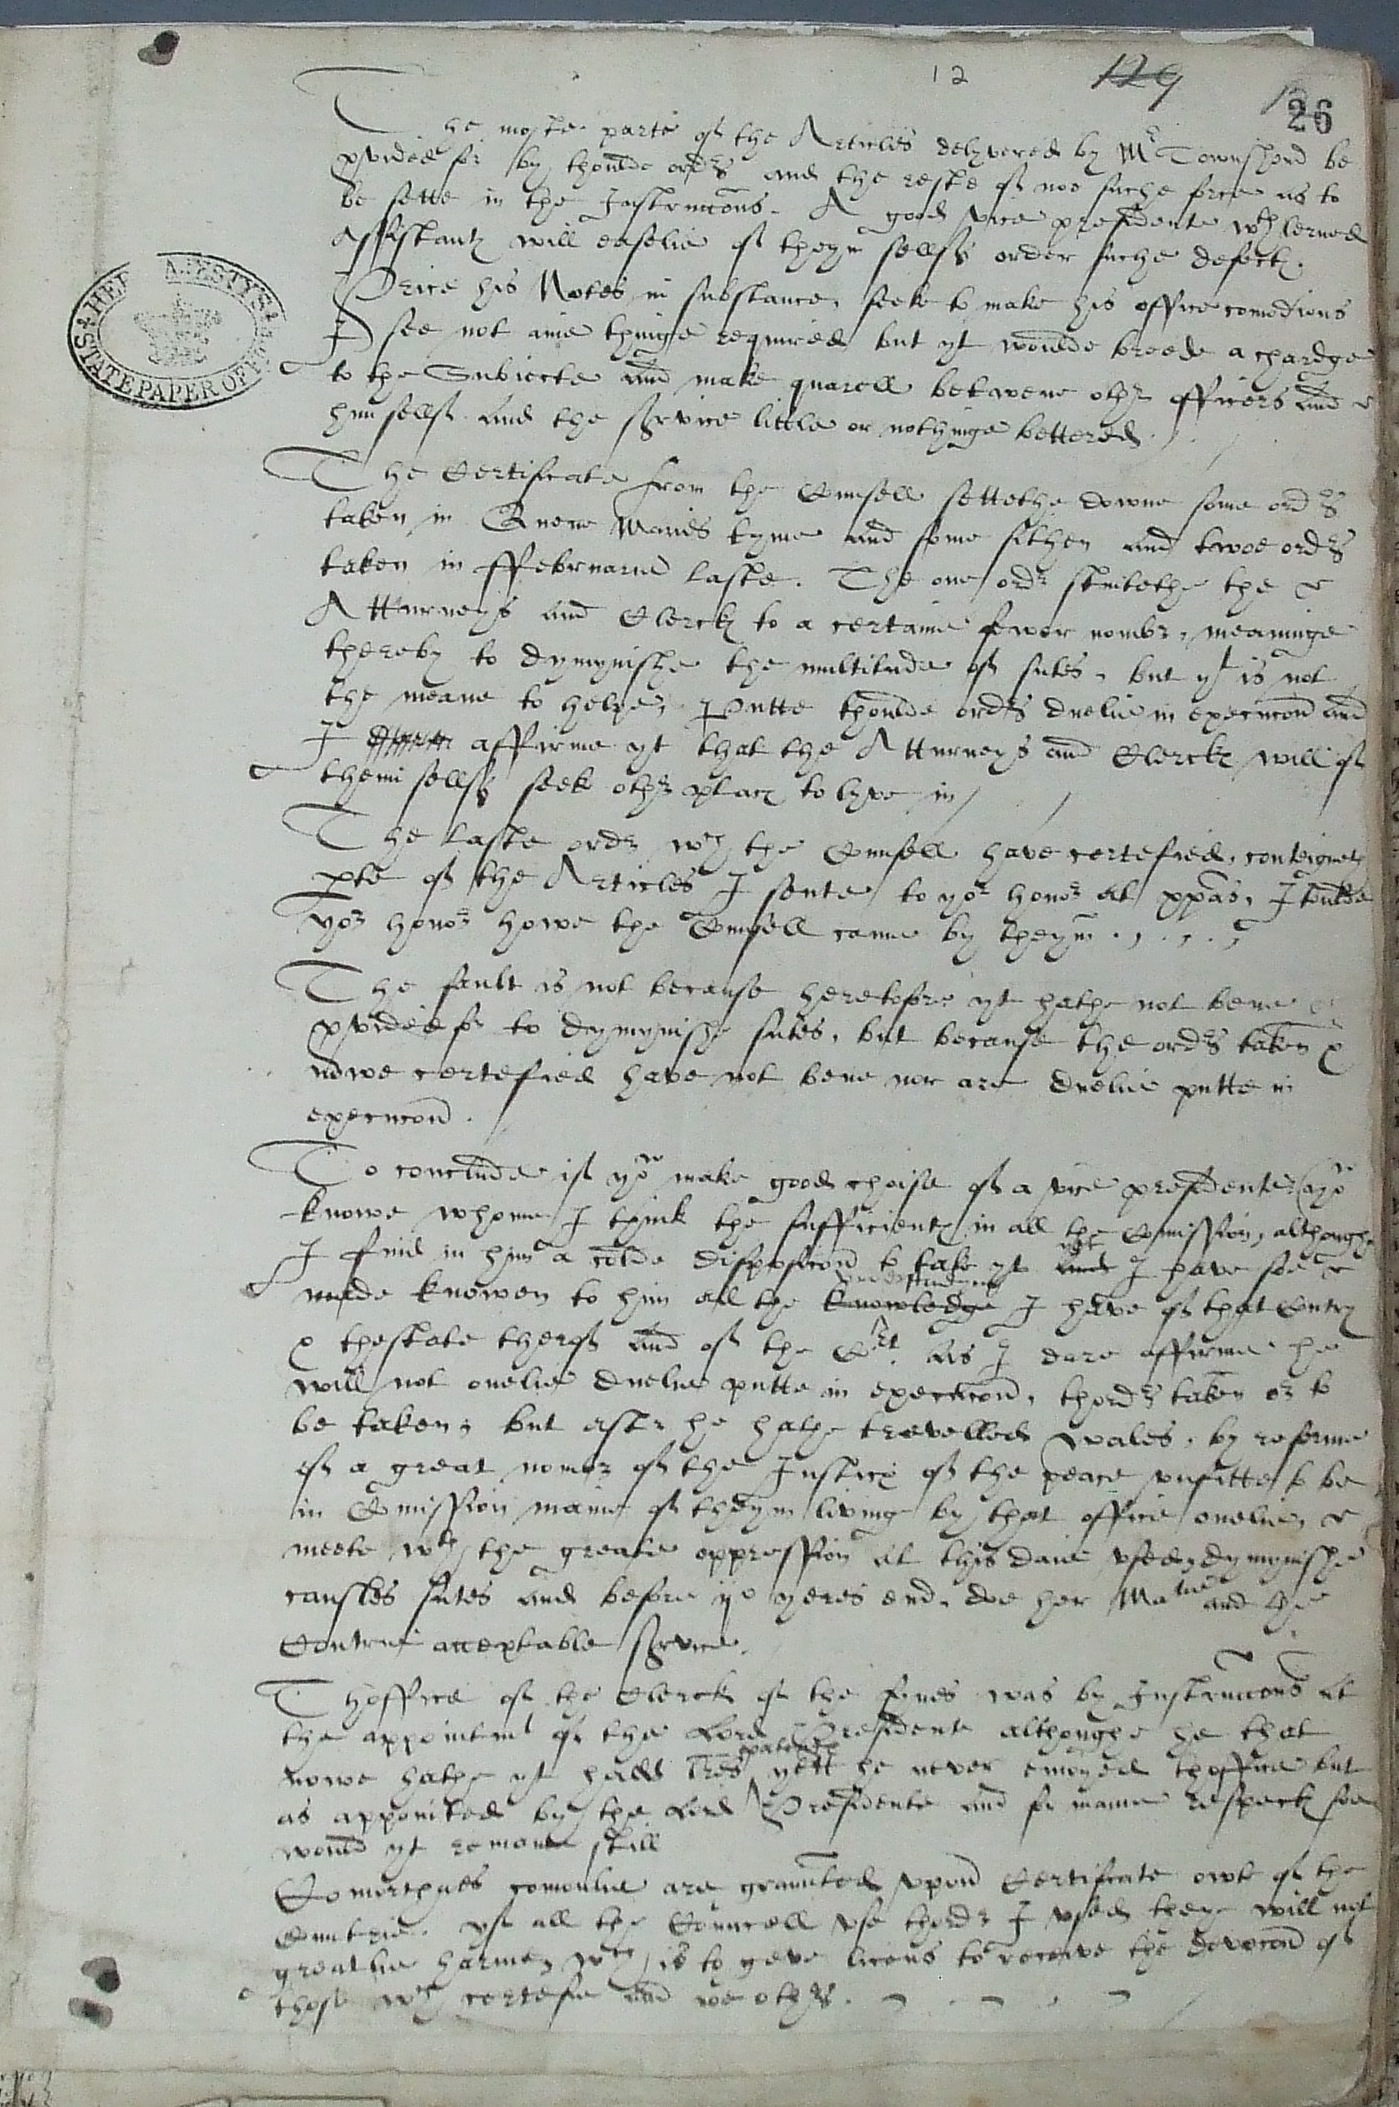 12 129
26
The moste parte of the Articles delyvered by Mr Townshend be
pvided for by tholde ordrs and the reste of noe suche force as to
be sette in the Instruccons. A good vice presidente wth lerned
Assistantz will easelie of theym sellfs order suche defectz.
Price his Notes in substance, seeke to make his office comodious
I see not anie thinge required but yt woulde breede a chardge
to the Subiecte and make quarell betwene othr officers and
him sellf and the service little or nothinge bettered.
HER MAJESTY'S
STATE PAPER OFF
The Certificate from the Counsell settethe downe some ordrs
taken in Quene Maries tyme and some sithen and twoe ordrs
taken in ffebruarie laste. The one ordr stintethe the
Atturneys and Clerckz to a certaine fewer nombr, meaninge
thereby to dymynishe the multitude of sutes, but yt is not
the meane to helpe, Putte tholde ordrs duelie in execucon and
I affirme yt that the Atturneys and Clerckz will of
themsellfs seek othr placz to lyve in
The laste ordr wch the Counsell have certefied, conteigneth
pte of the Articles I sente to yor honor at ppas, I toulde
yor honor howe the Counsell came by theym.
The fault is not because heretofore yt hathe not bene
pvided for to dymynishe sutes, but because the ordrs taken &
nowe certefied have not bene nor are duelie putte in
execucon.
To conclude if yow make good choise of a vice presidente (as yow
knowe whome I think the sufficientz in all the Comission, althoughe
I find in him a colde disposicon to take yt yet I have soe
made knowen to him all the knowledge understandinge I have of that Contry
& thestate therof and of the Cort as I dare affirme he
will not onelie duelie putte in execucon, thordrs taken or to
be taken, but after he hathe travelled Wales, by reforme
of a great nombr of the Justicz of the peace unfitte to be
in Comission manie of theym living by that office onelie,
meete wth the greate oppression at this daie used, dymynishe
causles sutes and before ijo yeres end, doe her Matie and the
Contrie acceptable service.
Thoffice of the Clerck of the fines was by Instruccons at
the appointmt of the Lord Presidente althoughe he that
nowe hathe yt hadd lres patentes yett he never enioyed thoffice but
as appointed by the Lord Presidente and for manie respectz soe
would yt remaine still
Comorthaes comonlie are graunted upon Certificate owt of the
Countrie. yf all the Councell use thordr I used there will not
great lie harme, wch is to geve licens to receive the devocon of
those wch certefie and no othrs.